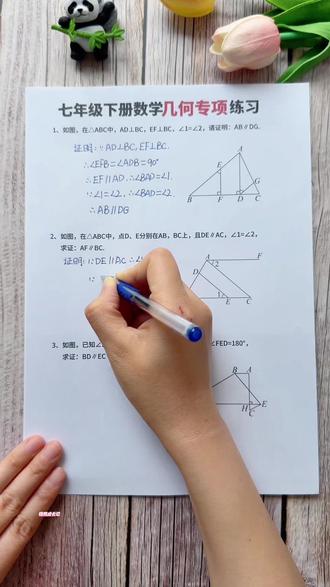 七年级下册数学几何专项练习
1、如图，在△ABC中，AD⊥BC，EF⊥BC，∠1=∠2，请证明：AB∥DG.
证明：∵AD⊥BC, EF⊥BC.
∴∠EFB=∠ADB=90°
∴EF∥AD ∴∠BAD=∠1.
∵∠1=∠2, ∴∠BAD=∠2.
∴AB∥DG
A
E
G
B F D C
2、如图，在△ABC中，点D、E分别在AB，BC上，且DE∥AC，∠1=∠2，
求证：AF∥BC.
证明：∵DE∥AC ∴∠
∵
A F
2
D
1
E C
3、如图，已知∠
∠FED=180°，
求证：BD∥EC
B A
H E
C